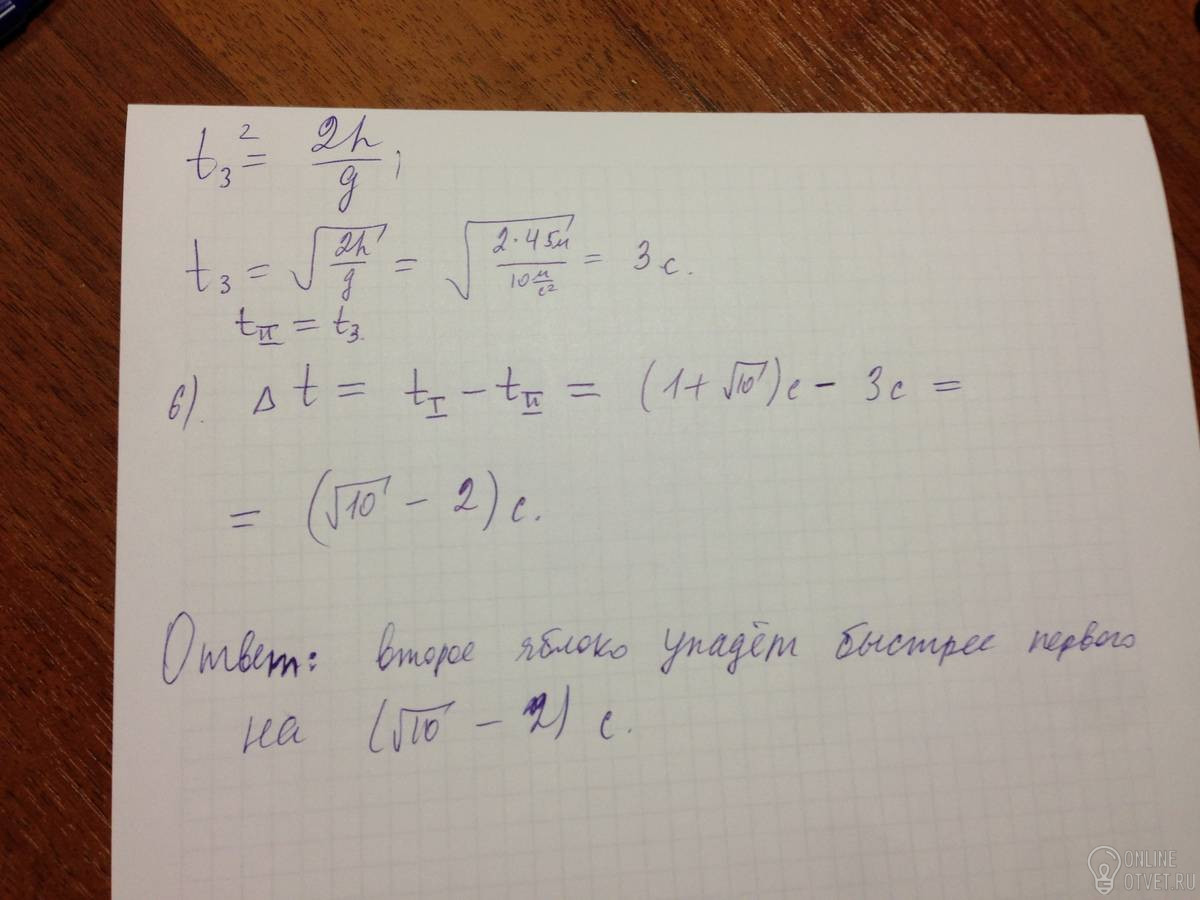 t₃² = 2h/g;
t₃ = √(2h/g) = √(2·45м/10 м/с²) = 3 с.
t_II = t₃.
6). Δt = t_I − t_II = (1+√10)с − 3с =
= (√10 − 2) с.
Ответ: второе яблоко упадёт быстрее первого
на (√10 − 2) с.
ONLINE
OTVET.RU